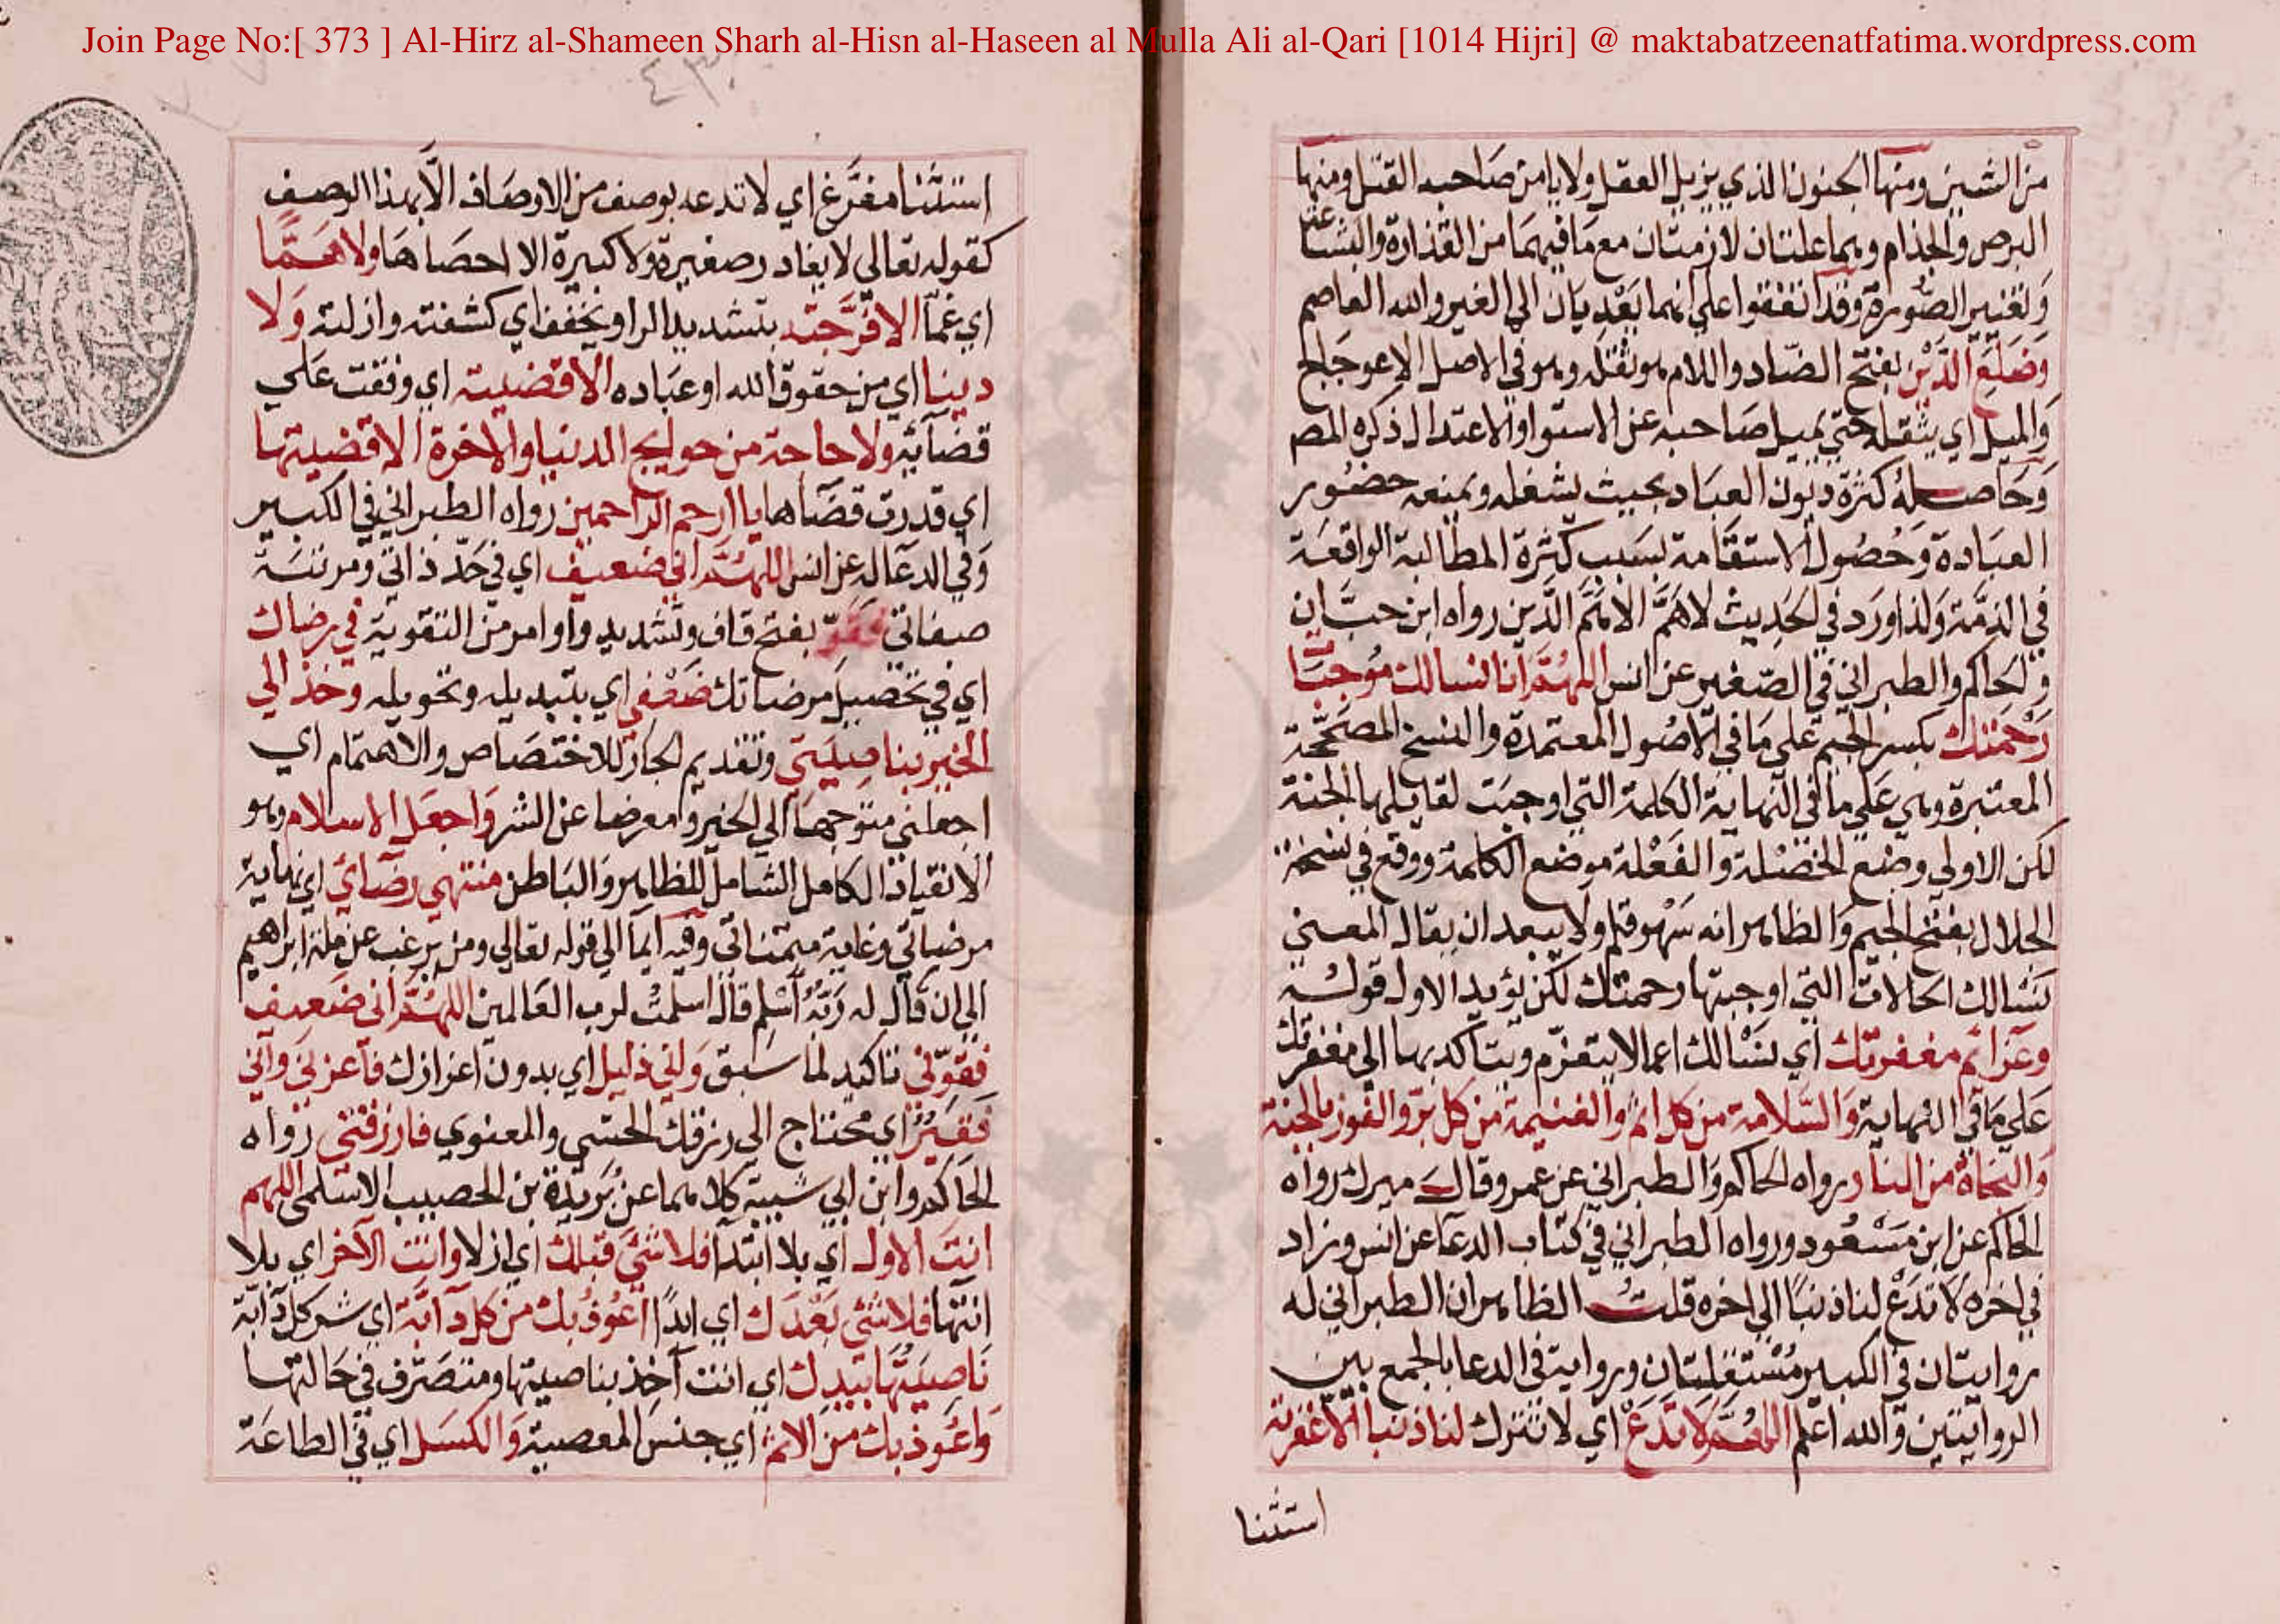 Join Page No:[ 373 ] Al-Hirz al-Shameen Sharh al-Hisn al-Haseen al Mulla Ali al-Qari [1014 Hijri] @ maktabatzeenatfatima.wordpress.com
من الشين ومنها الجنون الذي يزيل العقل ولا يامن صاحبه القتل ومنها
البرص والجذام وهما علتان لازمتان مع ما فيهما من القذارة والبشاعة
وتغيير الصورة وقد اتفقوا علي انهما يعديان الي الغير والله العاصم
وضلع الدين بفتح الضاد واللام هو ثقله وهو في الاصل الاعوجاج
والميل اي يثقله حتي يميل صاحبه عن الاستوا والاعتدال ذكره المص
وحاصله كثرة ديون العباد بحيث يشغله ويمنعه حضور
العبادة وحصول الاستقامة بسبب كثرة المطالبة الواقعة
في الذمة ولذا ورد في الحديث لا هم الا هم الدين رواه ابن حبان
والحاكم والطبراني في الصغير عن انس اللهم انا نسالك موجبات
رحمتك بكسر الجيم علي ما في الاصول المعتمدة والنسخ المصححة
المعتبرة وهي علي ما في النهاية الكلمة التي اوجبت لقايلها الجنة
لكن الاولي وضع الخصلة والفعلة موضع الكلمة ووقع في نسخة
الجلال بفتح الجيم والظاهر انه سهو قلم ولا يبعد ان يقال المعني
نسالك الحالات التي اوجبتها رحمتك لكن يؤيد الاول قوله
وعزائم مغفرتك اي نسالك اعمالا يتعزم ويتاكد بها الي مغفرتك
علي ما في النهاية والسلامة من كل اثم والغنيمة من كل بر والفوز بالجنة
والنجاة من النار رواه الحاكم والطبراني عن عمرو قال ميرك رواه
الحاكم عن ابن مسعود ورواه الطبراني في كتاب الدعا عن انس وزاد
في اخره لا تدع لنا ذنبا الي اخره قلت الظاهر ان الطبراني له
روايتان في الكبير مستقلتان ورواية في الدعا بالجمع بين
الروايتين والله اعلم اللهم لا تدع اي لا تترك لنا ذنبا الا غفرته
استثنا
استثنا مفرغ اي لا تدعه بوصف من الاوصاف الا بهذا الوصف
كقوله تعالي لا يغادر صغيرة ولا كبيرة الا احصاها ولا هما
اي غما الا فرجته بتشديد الرا ويخفف اي كشفته وازلته ولا
دينا اي من حقوق الله او عباده الا قضيته اي وفقت علي
قضائه ولا حاجة من حوايج الدنيا والاخرة الا قضيتها
اي قدرت قضاها يا ارحم الراحمين رواه الطبراني في الكبير
وفي الدعا له عن انس اللهم اني ضعيف اي في حد ذاتي ومرتبة
صفاتي فقو بفتح قاف وتشديد واو امر من التقوية في رضاك
اي في تحصيل مرضاتك ضعفي اي بتبديله وتحويله وخذ الي
الخير بناصيتي وتقديم الجار للاختصاص والاهتمام اي
اجعلني متوجها الي الخير ومعرضا عن الشر واجعل الاسلام وهو
الانقياد الكامل الشامل للظاهر والباطن منتهي رضائي اي نهاية
مرضاتي وغاية متمناتي وفيه ايما الي قوله تعالي ومن يرغب عن ملة ابراهيم
الي ان قال له ربه اسلم قال اسلمت لرب العالمين اللهم اني ضعيف
فقوني تاكيد لما سبق واني ذليل اي بدون اعزازك فاعزني واني
فقير اي محتاج الي رزقك الحسي والمعنوي فارزقني رواه
الحاكم وابن ابي شيبة كلاهما عن بريدة بن الحصيب الاسلمي اللهم
انت الاول اي بلا ابتدا فلا شيء قبلك اي ازلا وانت الآخر اي بلا
انتها فلا شيء بعدك اي ابدا اعوذ بك من كل دآبة اي شر كل دآبة
ناصيتها بيدك اي انت آخذ بناصيتها ومتصرف في حالتها
واعوذ بك من الاثم اي جنس المعصية والكسل اي في الطاعة